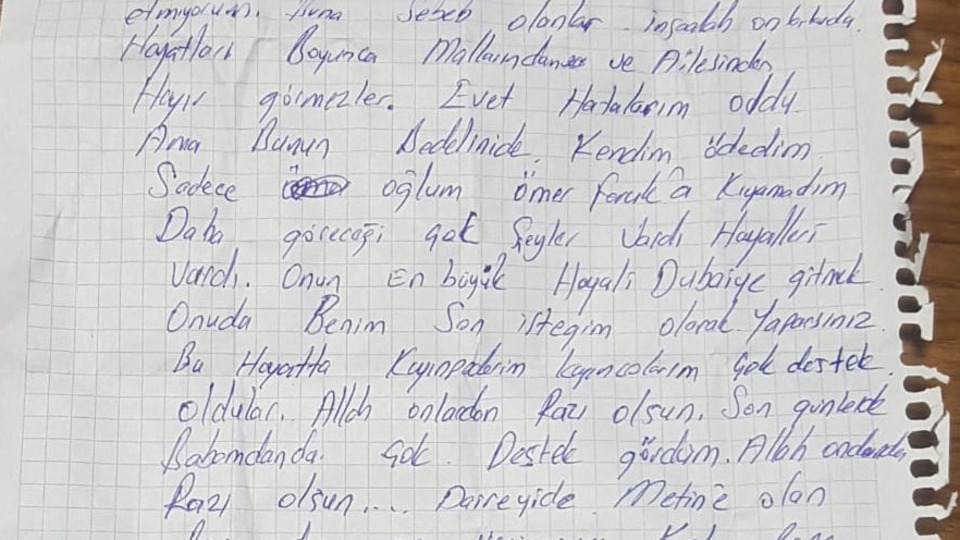 etmiyorum. Buna Sebeb olanlar inşaalah onbirkıda.
Hayatları Boyunca Mallarından ve Ailesinden
Hayır görmezler. Evet Hatalarım oddu.
Ama Bunun Bedelinide. Kendim ödedim.
Sadece oğlum ömer faruk'a Kıyamadım
Daha göreceği çok Şeyler Vardı Hayalleri
Vardı. Onun En büyük Hayali Dubaiye gitmek.
Onuda Benim Son isteğim olarak Yaparsınız.
Bu Hayatta Kayınpederim kayıncolarım çok destek.
oldular. Allah onlardan Razı olsun. Son günlerde
Babamdanda. çok. Destek gördüm. Allah ondanda
Razı olsun.... Daireyide Metin'e olan